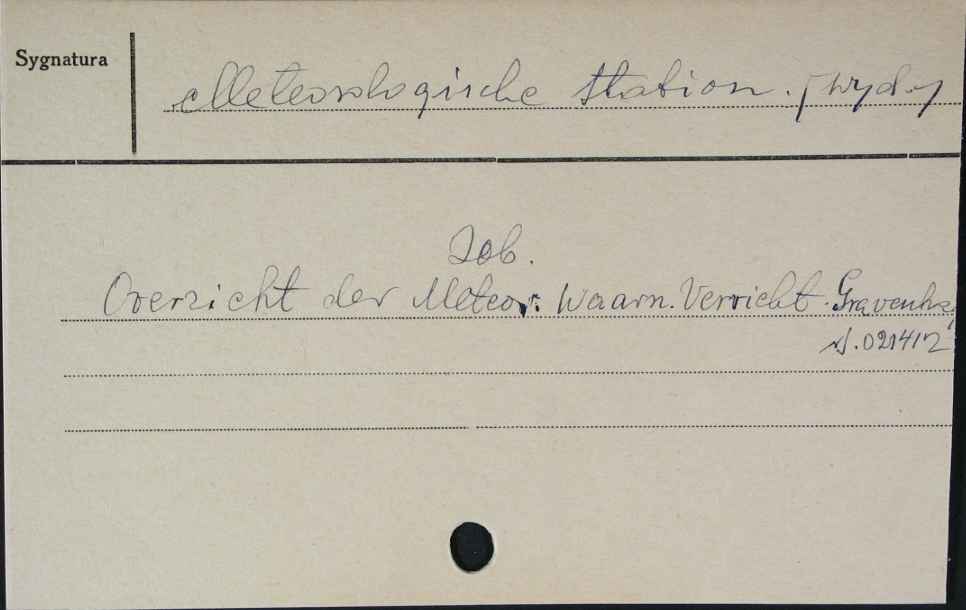 Sygnatura
Meteorologische Station. [wyd.]
Zob.
Overzicht der Meteor. Waarn. Verricht. Gravenhag
N.021412